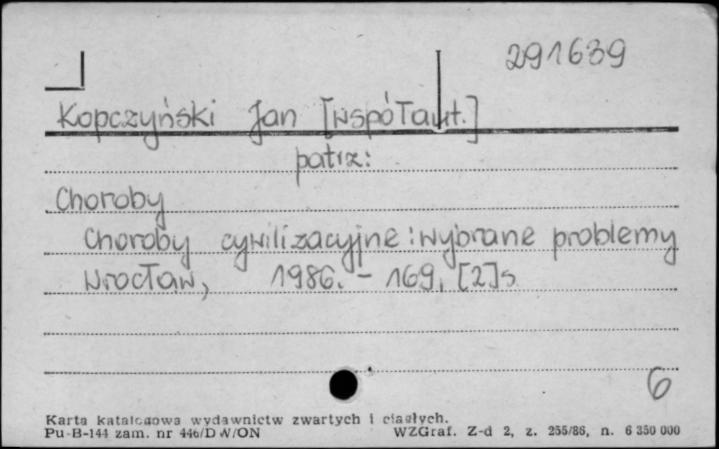 291639
Kopczyński Jan [współaut.]
patrz:
Choroby
Choroby cywilizacyjne : wybrane problemy
Wrocław, 1986. - 169, [2] s
6
Karta katalogowa wydawnictw zwartych i ciągłych.
Pu-B-144 zam. nr 446/DW/ON WZGraf. Z-d 2, z. 255/86, n. 6 350 000